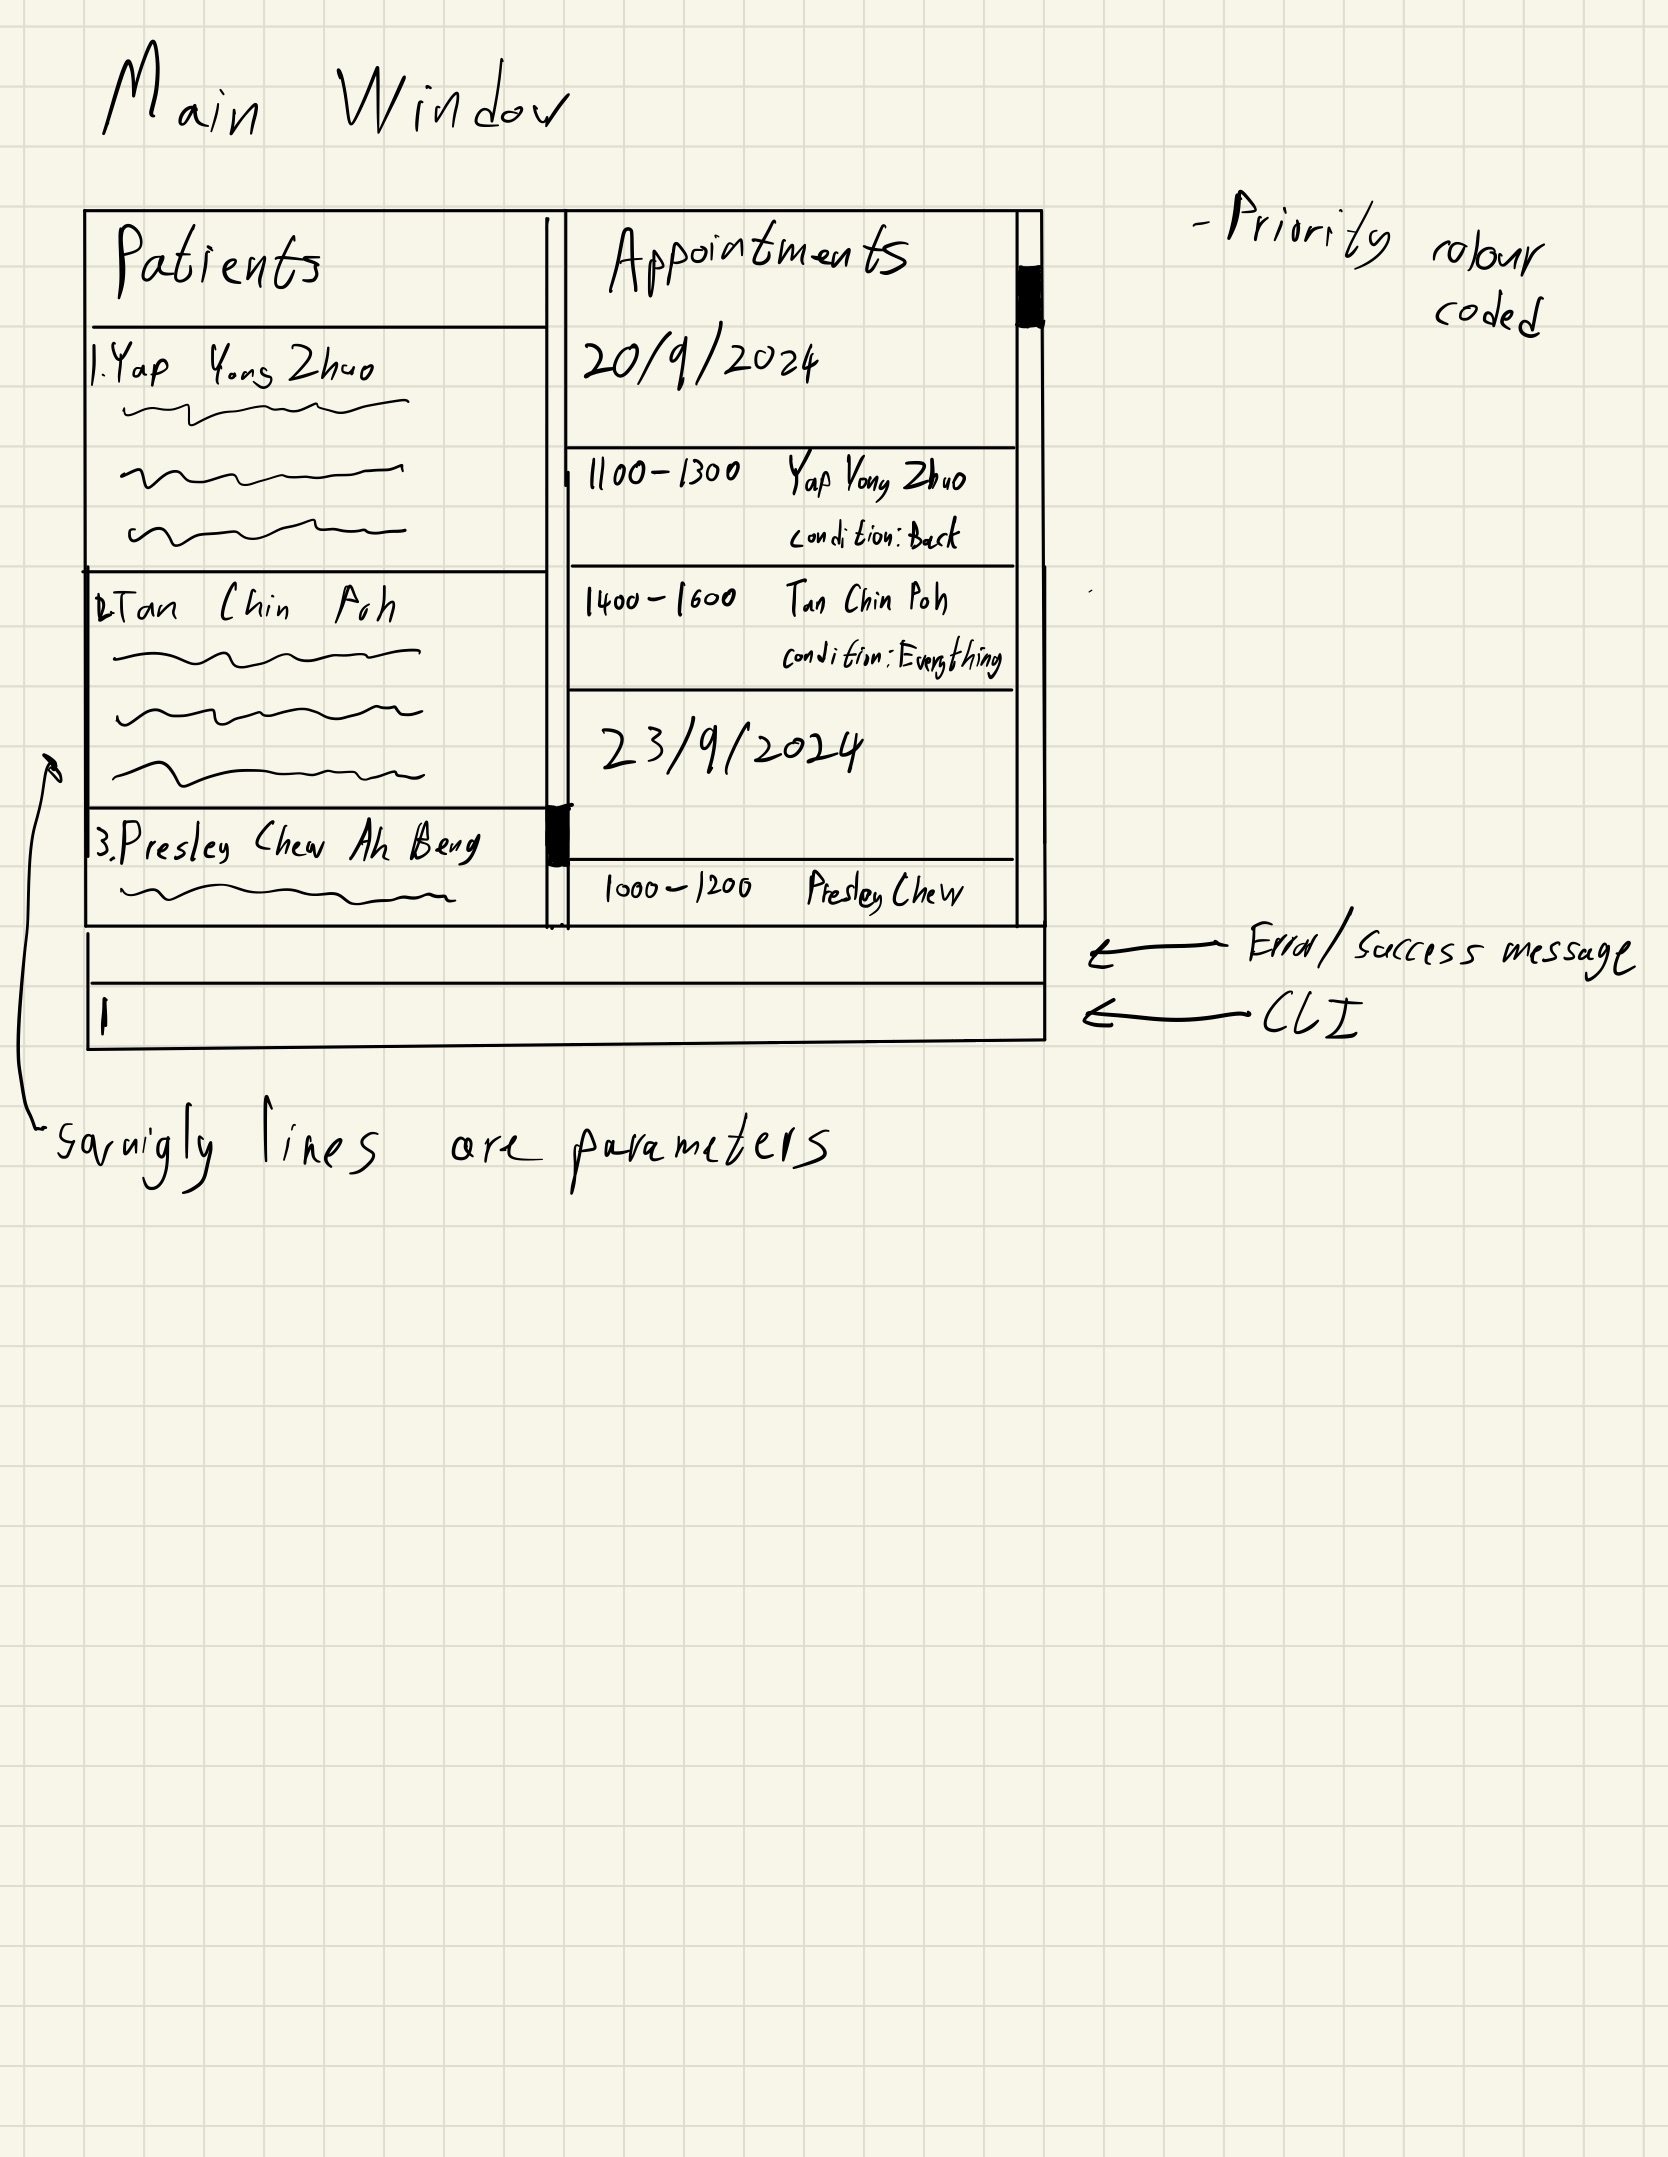 Main Window
- Priority colour
coded
Patients
1. Yap Yong Zhuo
2. Tan Chin Poh
3. Presley Chew Ah Beng
Appointments
20/9/2024
1100-1300 Yap Yong Zhuo
condition: Back
1400-1600 Tan Chin Poh
condition: Everything
23/9/2024
1000-1200 Presley Chew
Error/success message
CLI
squigly lines are parameters